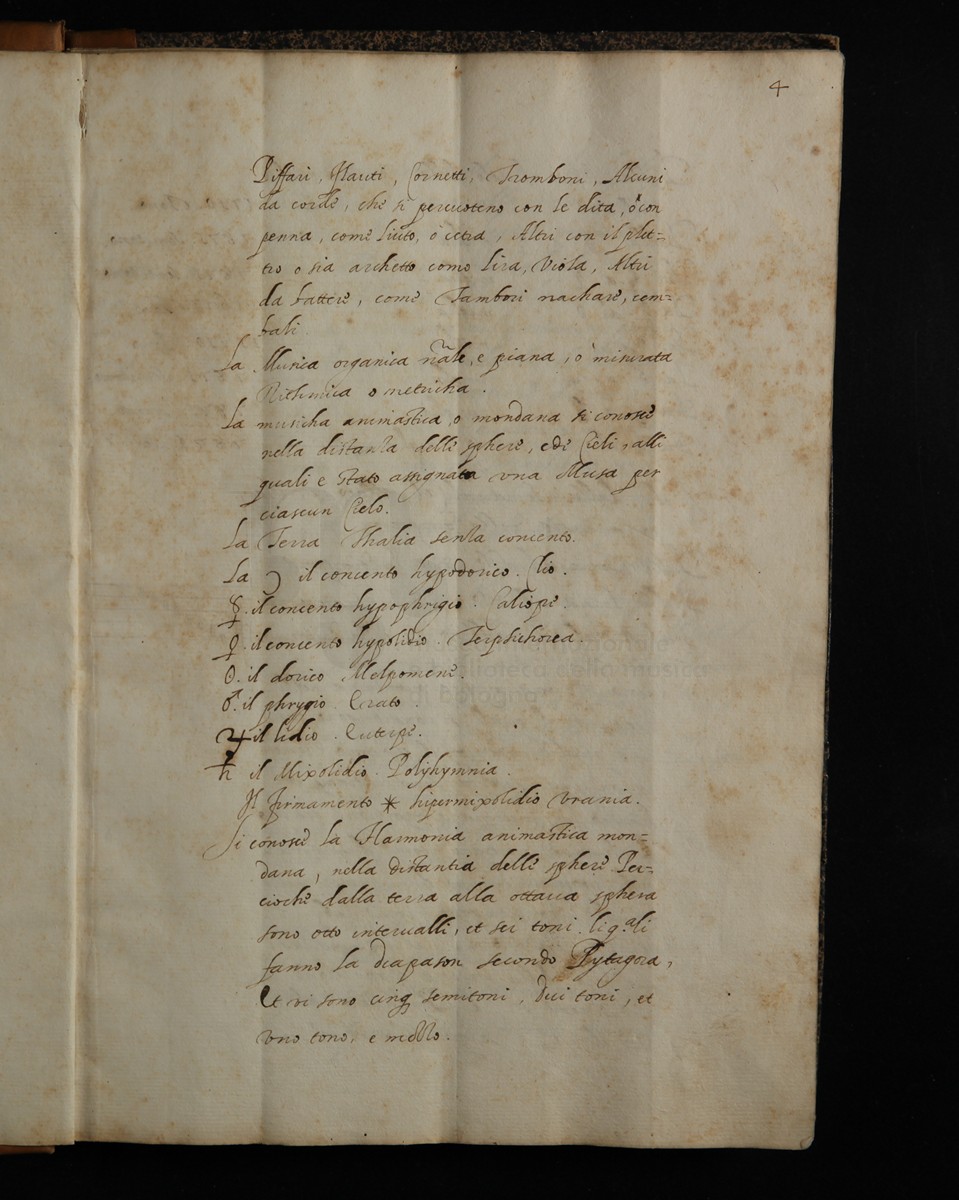 4
Piffari, Flauti, Cornetti, Tromboni, Alcuni
da corde, che si percuoteno con le dita, ò con
penna, come liuto, ò cetra, Altri con il plet=
tro o sia archetto como lira, Viola, Altri
da battere, come Tambori nachare, cem=
bali.
La Musica organica n̄ale, e piana, ò misurata
Rithmica o metricha.
La musicha animastica, o mondana si conosce
nella distanza delle sphere, e de Cieli, alli
quali e stato assignata una Musa per
ciascun Cielo.
La Terra Thalia senza concento.
La ☽ il concento hypodorico. Clio.
☿. il concento hypophrigio. Caliope.
♀. il concento hypolidio. Terpsichorea.
O. il dorico Melpomene.
♂. il phrygio. Erato.
♃ il lidio. Euterpe.
♄ il Mixolidio. Polyhymnia.
Il firmamento * hipermixolidio Urania.
Si conosce la Harmonia animastica mon=
dana, nella distantia delle sphere. Per=
cioche dalla terra alla ottava sphera
sono otto intervalli, et sei toni. li q.ali
fanno la diapason secondo Pytagora,
Et vi sono cinq semitoni, Dui toni, et
uno tono, e mezzo.